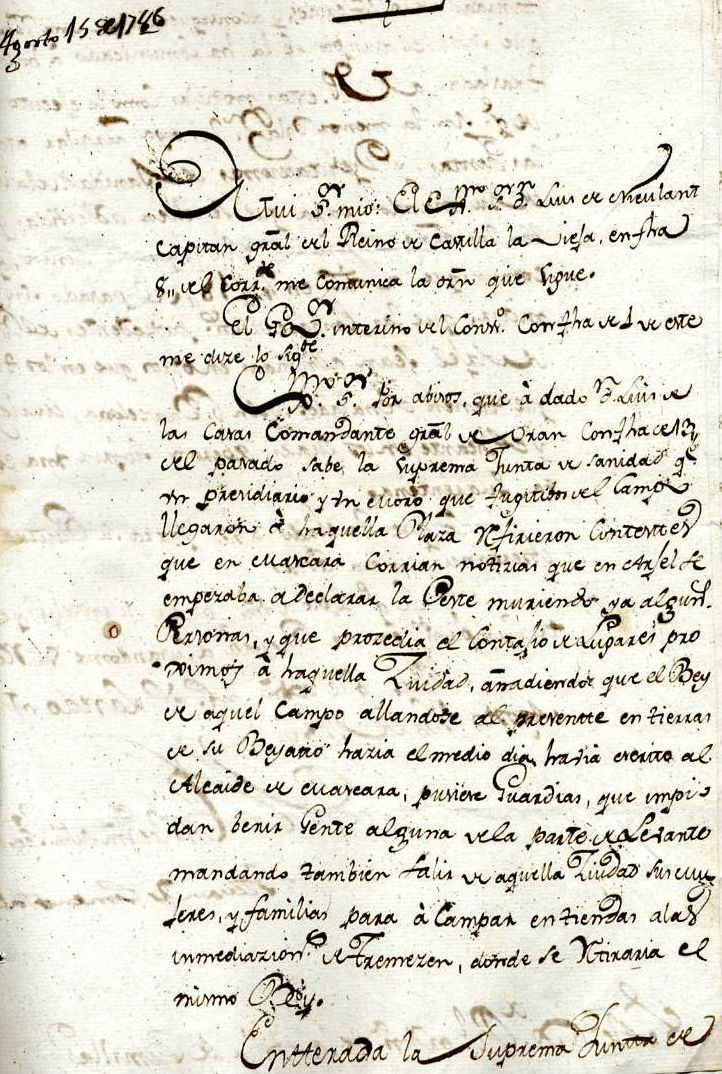 Agosto 15 de 1786
Mui Sr. mio: El Exmo. Sr. Dn. Luis de
Capitan Gral del Reino de Castilla la Vieja, en fha
8,, del Corrte. me comunica la orn que sigue.
El Gor. interino del Consº. Con fha de 1 de este
me dize lo sigte.
Exmo. Sr. Por abisos, que à dado Dn. Luis de
las Casas Comandante gral de Oran Con fha de 13
del pasado sabe la Suprema Junta de Sanidad qe.
un presidiario y un moro que fugitibos del Campo
llegaron à haquella Plaza refirieron Contestes
que en Mascara Corrian notizias que en Arsel se
empezaba a declarar la Peste muriendo ya alguns.
Personas, y que prozedia el Contajio de Lugares pro
ximos à haquella Ziudad, añadiendo que el Bey
de aquel Campo allandose al presentte en tierras
de su Beyato hazia el medio dia, havia escrito al
Alcaide de Mascara, pusiese Guardias, que impi
dan benir Gente alguna de la parte de Levante
mandando tambien salir de aquella Ziudad sus Mu
jeres, y familias para à Campar en tiendas a las
inmediazions. de Tremezen, donde se retiraria el
mismo Bey.
Entterada la Suprema Juntta de